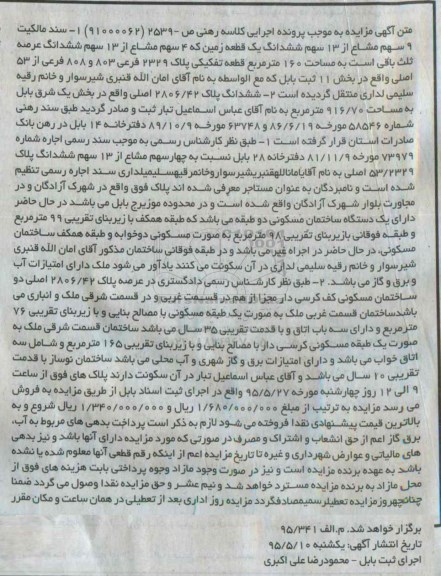 متن آگهی مزایده به موجب پرونده اجرایی کلاسه رهنی ص -۲۵۳۹ (۹۱۰۰۰۰۶۲) ۱- سند مالکیت
۹ سهم مشاع از ۱۳ سهم ششدانگ یک قطعه زمین که ۴ سهم مشاع از ۱۳ سهم ششدانگ عرصه
ثلث باقی است به مساحت ۱۶۰ مترمربع قطعه تفکیکی پلاک ۲۳۲۹ فرعی ۸۰۳ و ۸۰۸ فرعی از ۵۳
اصلی واقع در بخش ۱۱ ثبت بابل که مع الواسطه به نام آقای امان الله قنبری شیرسوار و خانم رقیه
سلیمی لداری منتقل گردیده است ۲- ششدانگ پلاک ۲۸۰۶/۴۲ اصلی واقع در بخش یک شرق بابل
به مساحت ۹۱۶/۷۰ مترمربع به نام آقای عباس اسماعیل تبار ثبت و صادر گردید طبق سند رهنی
شماره ۵۸۵۴۶ مورخه ۸۶/۶/۱۹ و ۶۳۷۴۸ مورخه ۸۹/۱۰/۹ دفترخانه ۱۴ بابل در رهن بانک
صادرات استان قرار گرفته است ۱- طبق نظر کارشناس رسمی به موجب سند رسمی اجاره شماره
۷۳۹۷۹ مورخه ۸۱/۱۱/۹ دفترخانه ۲۸ بابل نسبت به چهارسهم مشاع از ۱۳ سهم ششدانگ پلاک
۵۳/۲۳۲۹ اصلی به نام آقایاماناللهقنبریشیرسواروخانمرقیهسلیمیلداری سند اجاره رسمی تنظیم
شده است و نامبردگان به عنوان مستاجر معرفی شده اند پلاک فوق واقع در شهرک آزادگان و در
مجاورت بلوار شهرک آزادگان واقع شده است و در محدوده موزیرج بابل می باشد در حال حاضر
دارای یک دستگاه ساختمان مسکونی دو طبقه می باشد که طبقه همکف با زیربنای تقریبی ۹۹ مترمربع
و طبقه فوقانی بازیربنای تقریبی ۹۸ مترمربع به صورت مسکونی دوخوابه و طبقه همکف ساختمان
مسکونی، در حال حاضر در اجاره غیر می باشد و در طبقه فوقانی ساختمان مذکور آقای امان الله قنبری
شیرسوار و خانم رقیه سلیمی لداری در آن سکونت می کنند یادآور می شود ملک دارای امتیازات آب
و برق و گاز می باشد. ۲- طبق نظر کارشناس رسمی دادگستری در عرصه پلاک ۲۸۰۶/۴۲ اصلی دو
ساختمان مسکونی کف کرسی دار مجزا از هم در قسمت غربی و در قسمت شرقی ملک و انباری می
باشدساختمان قسمت غربی ملک به صورت یک طبقه مسکونی با مصالح بنایی و با زیربنای تقریبی ۷۶
مترمربع و دارای سه باب اتاق و با قدمت تقریبی ۳۵ سال می باشد ساختمان قسمت شرقی ملک به
صورت یک طبقه مسکونی کرسی دار با مصالح بنایی و با زیربنای تقریبی ۱۶۵ مترمربع و شامل سه
اتاق خواب می باشد و دارای امتیازات برق و گاز شهری و آب محلی می باشد ساختمان نوساز با قدمت
تقریبی ۱۰ سال می باشد و آقای عباس اسماعیل تبار در آن سکونت دارند پلاک های فوق از ساعت
۹ الی ۱۲ روز چهارشنبه مورخه ۹۵/۵/۲۷ واقع در اجرای ثبت اسناد بابل از طریق مزایده به فروش
می رسد مزایده به ترتیب از مبلغ ۱/۶۸۰/۰۰۰/۰۰۰ ریال و ۱/۳۴۰/۰۰۰/۰۰۰ ریال شروع و به
بالاترین قیمت پیشنهادی نقدا فروخته می شود لازم به ذکر است پرداخت بدهی های مربوط به آب،
برق گاز اعم از حق انشعاب و اشتراک و مصرف در صورتی که مورد مزایده دارای آنها باشد و نیز بدهی
های مالیاتی و عوارض شهرداری و غیره تا تاریخ مزایده اعم از اینکه رقم قطعی آنها معلوم شده یا نشده
باشد به عهده برنده مزایده است و نیز در صورت وجود مازاد وجوه پرداختی بابت هزینه های فوق از
محل مازاد به برنده مزایده مسترد خواهد شد و نیم عشر و حق مزایده نقدا وصول می گردد ضمنا
چنانچهروزمزایده تعطیلرسمیمصادفگردد مزایده روز اداری بعد از تعطیلی در همان ساعت و مکان مقرر
برگزار خواهد شد. م.الف ۹۵/۳۴۱
تاریخ انتشار آگهی: یکشنبه ۹۵/۵/۱۰
اجرای ثبت بابل - محمودرضا علی اکبری